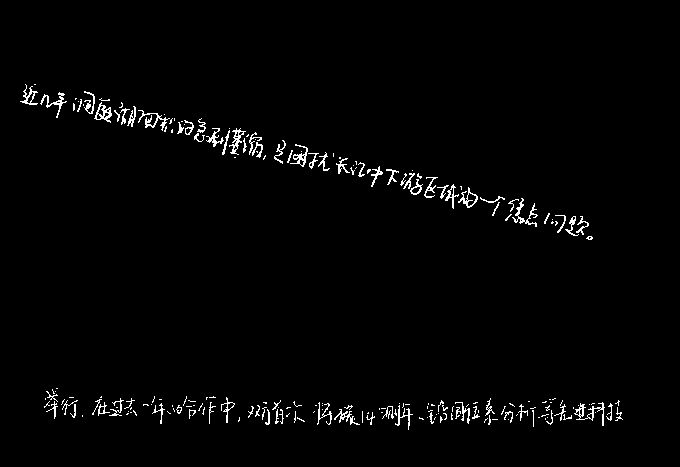 近几年洞庭湖面积的急剧萎缩,是困扰长江中下游区域的一个焦点问题。
举行.在过去一年的合作中,双方首次将碳14测年、锶同位素分析等先进科技